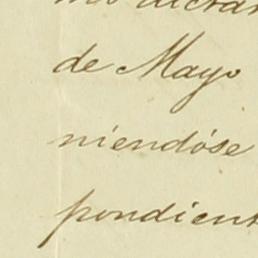 de Mayo
niendóse
pondient